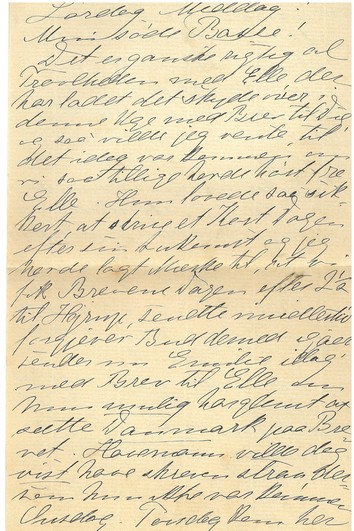 Lördag Middag!
Min søde Basse!
Det er ganske rigtig at
Travlheden med Elle der
har ladet det skyde over i
denne Uge med Brev til Dig
og saa vilde jeg vente, til
Idet idag var kommen, om
vi saa tillige havde hørt fra
Elle. Hun lovede saa sik-
kert, at skrive et Kort Dagen
efter sin Ankomst og jeg
havde lagt Mærke til, at vi
fik Brevene Dagen efter
til Hjrup, sendte
forgjæves Bud dermed igaar
sender nu Emilie idag
med Brev til Elle om
hun mulig har glemt at
sætte Danmark paa Bre-
vet. Havemann vilde dog
vist have skreven strax der-
som hun ikke var kommen
Onsdag Torsdag kom her